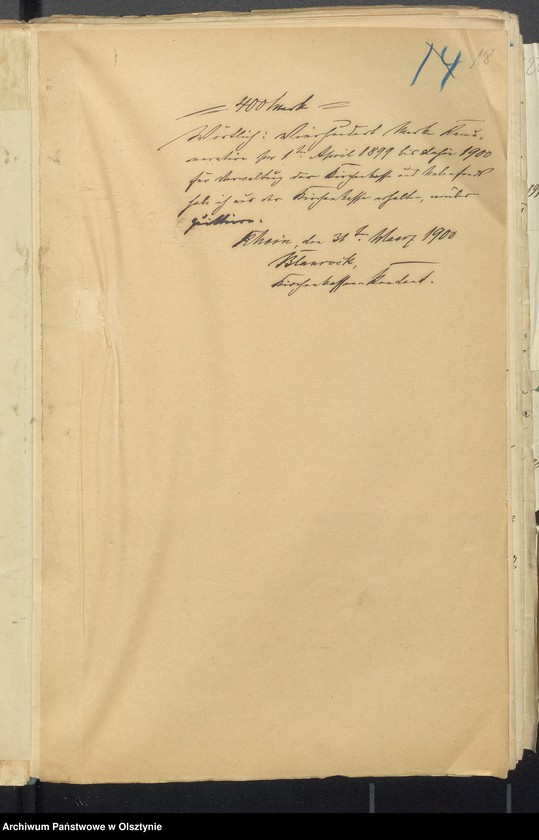 14 18
= 400 Mark =
Wörtlich: Vierhundert Mark Remu-
neration für 1ten April 1899 bis dahin 1900
für Verwaltung der Kirchenkasse und
habe ich aus der Kirchenkasse erhalten, worüber
quittire.
Rhein, den 31ten Maerz 1900
Kirchenkassen-Rendant.
Archiwum Państwowe w Olsztynie